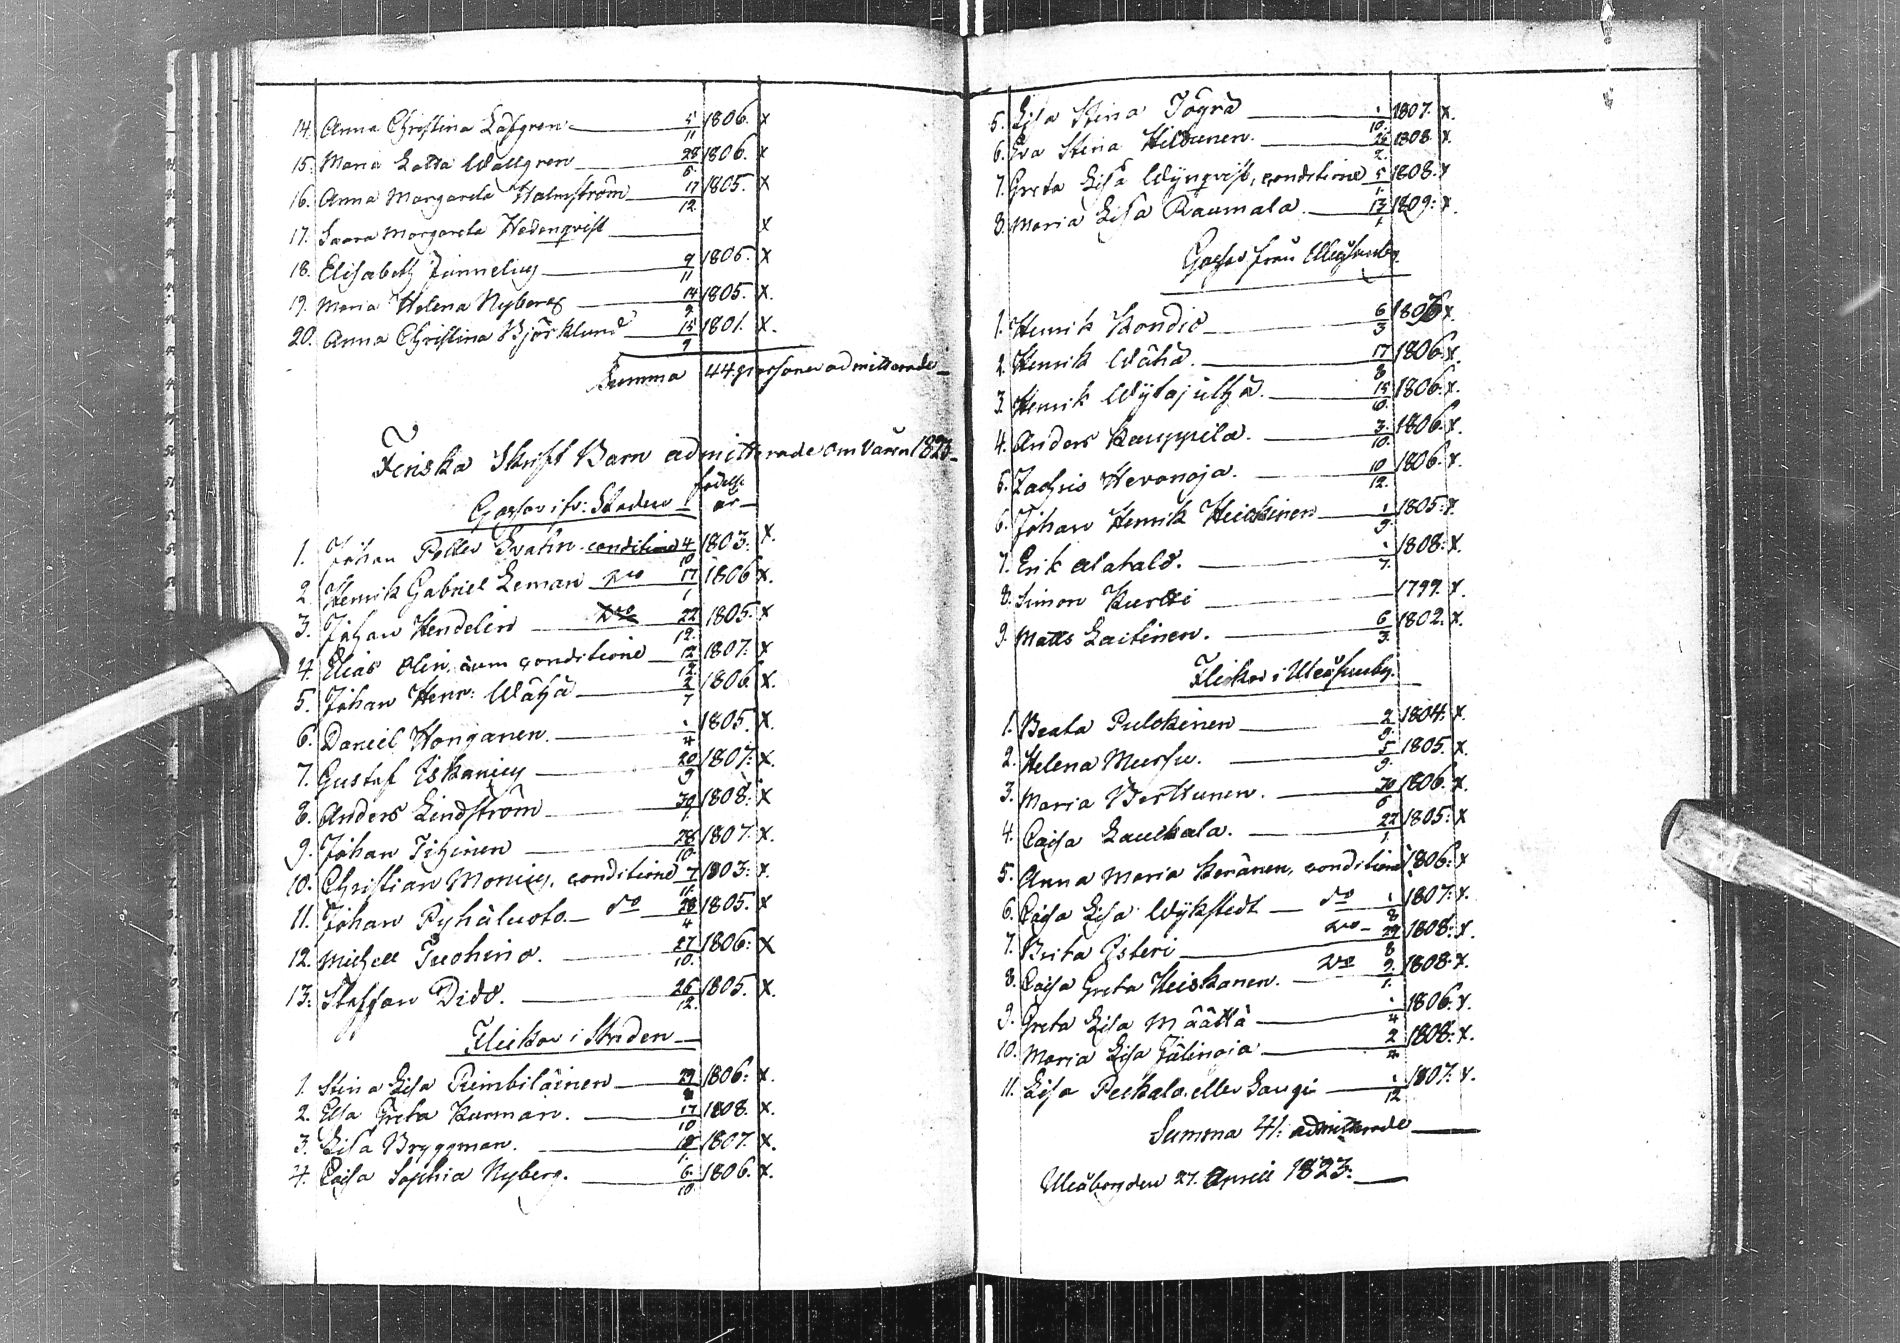 14. Anna Christina Löfgren 5/11 1806. x
15. Maria Lotta Wallgren 28/5. 1806. x
16. Anna Margareta Holmström 17/12 1805. x
17. Saara Margareta Hedenqvist x
18. Elisabeth 9/11 1806. x
19. Maria Helena Nyberg 14/9. 1805. x.
20. Anna Christina Björklund 15/9 1801. x.
Summa 44 personer admitterade
Finska Skrift Barn admitterade om våren 1823
födelse
Gossar i fr: Staden år
1. Johan Petter conditione 4/10 1803. x.
2. Henrik Gabriel Leman do 17/1 1806 x.
3. Johan Hendelin do 22/12. 1805. x
4. Elias Olin, cum conditione 12/12. 1807. x
5. Johan Henr: Wähä 2/7 1806 x.
6. Daniel Honganen. 1/4 1805. x.
7. Gustaf Iskanius 20/9 1807. x.
8. Anders Lindström 1808. x
9. Johan Tihinen 28/10. 1807. x.
10. Christian Monius, conditione 7/11. 1803. x.
11. Johan Pyhäluoto do 28/4 1805. x.
12. Michell Tuohino. 27/10. 1806. x
13. Staffan Dido. 26/12. 1805. x.
Flickor i Staden
1. Stina Lisa Pimbiläinen 29 1806. x.
2. Ulla Greta Kurman. 17/10 1808. x.
3. Lisa Bryggman. 1807. x.
4. Caisa Sophia Nyberg. 6./10 1806. x.
5. Lisa Stina Jögrä 1/10. 1807. x.
6. Eva Stina Hildunen. 26/2. 1808 x.
7. Greta Lisa Wynqvist, conditione 5/1. 1808. x
8. Maria Lisa Raumala. 13 1809. x.
Gossar från Uleåsuuby
1. Henrik Kondio 6/3 x.
2. Henrik Wähä. 17/8 1806. x.
3. Henrik 15/10. 1806. x.
4. Anders Kauppila. 3./10. 1806. x.
5. Zachris Hevonoja. 10/12. 1806. x.
6. Johan Henrik Heickinen 1/9. 1805. x.
7. Erik Alatalo. 1/7. 1808. x.
8. Simon Kurtti 1799. x.
9. Matts Laitinen. 6/3. 1802. x.
Flickor i Uleåsuuby.
1. Beata Pulckinen 2/9. 1804. x.
2. Helena Mursu. 5/9. 1805. x.
3. Maria Berttunen. 30/6 1806. x.
4. Caisa Lauckala. 22/1. 1805. x
5. Anna Maria Keränen, conditione 1806. x
6. Caisa Lisa Wykstedt do 1/8 1807. x.
7. Brita Ysteri do 29/8 1808. x.
8. Caisa Greta Heiskanen. do 9./1. 1808. x.
9. Greta Lisa Määttä 1/4 1806. x.
10. Maria Lisa Jälinoja 2/4 1808. x.
11. Lisa Peckala eller Laugi 1/12 1807. x.
Summa 41. admitterade
Uleåborg den 27. April 1823.